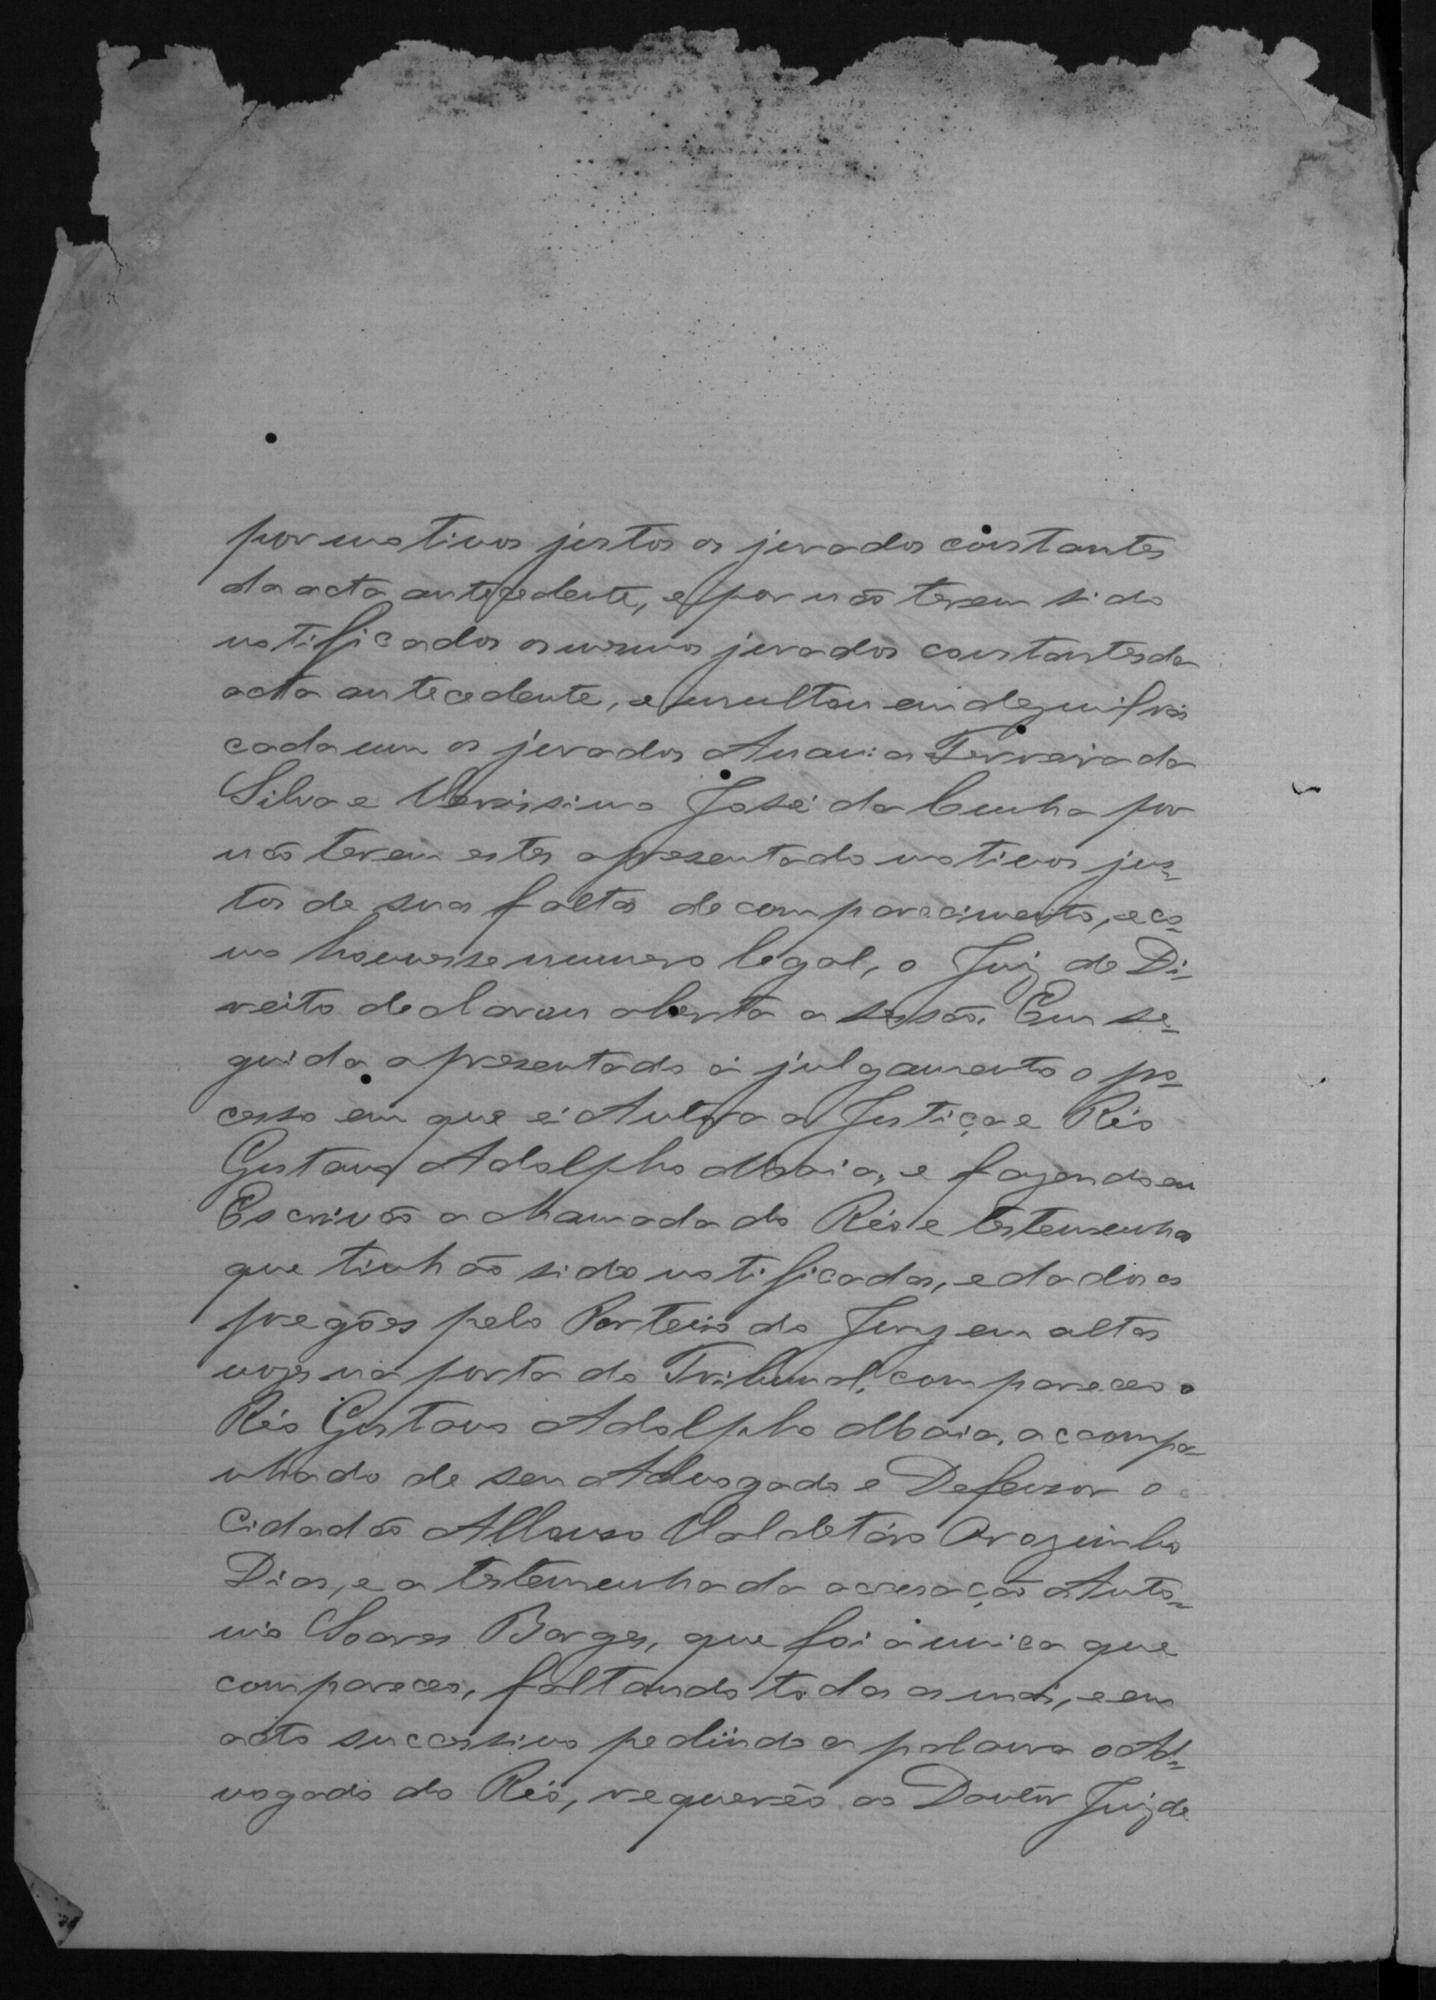 por motivos justos os jurados constantes
da acta antecedente, e por não terem sido
notificados os mesmos jurados constantes da
acta antecedente, e multou em dez mil reis
cada um os jurados Anania Ferreira da
Silva e Verissimo José da Cunha por
não terem estes apresentado motivos jus-
tos de suas faltas de comparecimento, e co-
mo houvesse numero legal, o Juiz de Di-
reito declarou aberta a sessão. Em se-
guida apresentado á julgamento o pro-
cesso em que é Autora a Justiça e Réo
Gustavo Adolpho Maia, e fazendo eu
Escrivão a chamada do Réo e testemunha
que tinhão sido notificadas, e dados os
pregões pelo Porteiro do Jury em altas
vozes na porta do Tribunal, compareceo o
Réo Gustavo Adolpho Maia, accompa-
nhado de seu Advogado e Defensor o
Cidadão Affonso Valdetáro Orozimbo
Dias, e a testemunha da accusação Anto-
nio Soares Borges, que foi a unica que
compareceo, faltando todas as mais, e em
acto successivo pedindo a palavra o Ad-
vogado do Réo, requereo ao Doutor Juiz de